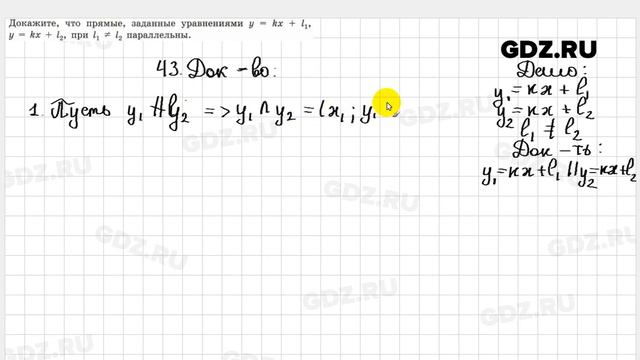 Докажите, что прямые, заданные уравнениями y = kx + l₁,
y = kx + l₂, при l₁ ≠ l₂ параллельны.
43. Док-во:
1. Пусть y₁ ∦ y₂ => y₁ ∩ y₂ = (x₁; y₁
GDZ.RU
Дано:
y₁ = кx + l₁
y₂ = кx + l₂
l₁ ≠ l₂
Док-ть:
y₁=кx+l₁ || y₂=кx+l₂
GDZ.RU
GDZ.RU
GDZ.RU
GDZ.RU
GDZ.RU
GDZ.RU
GDZ.RU